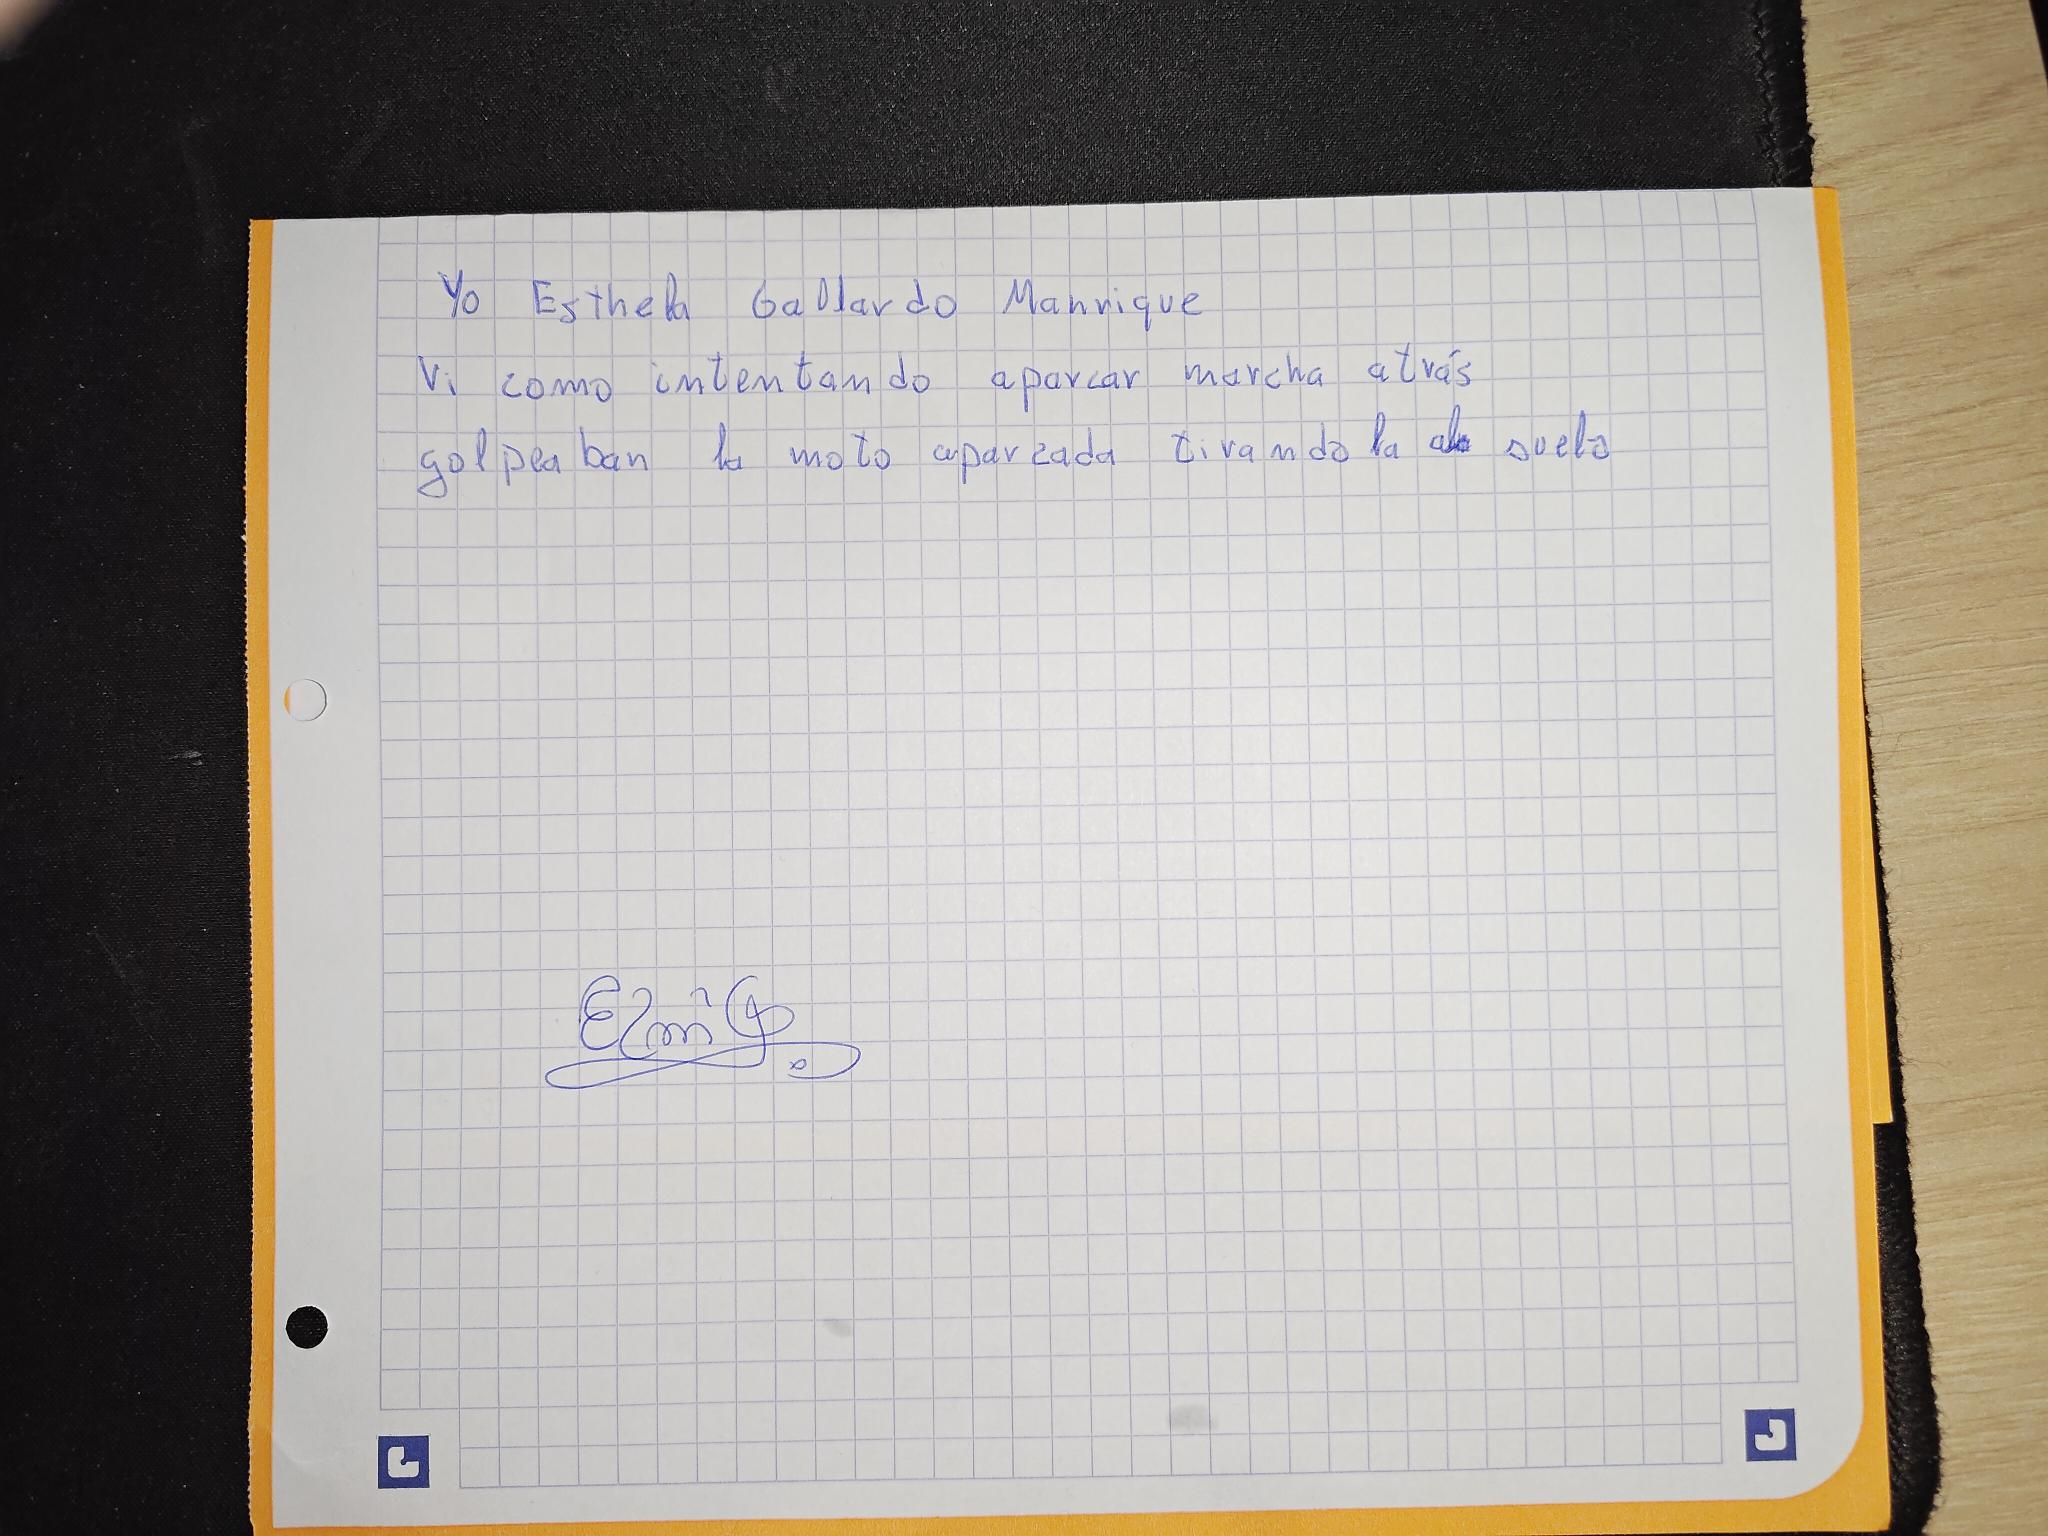 Yo Esthela Gallardo Manrique
Vi como intentando aparcar marcha atrás
golpeaban la moto aparcada tirandola al suelo